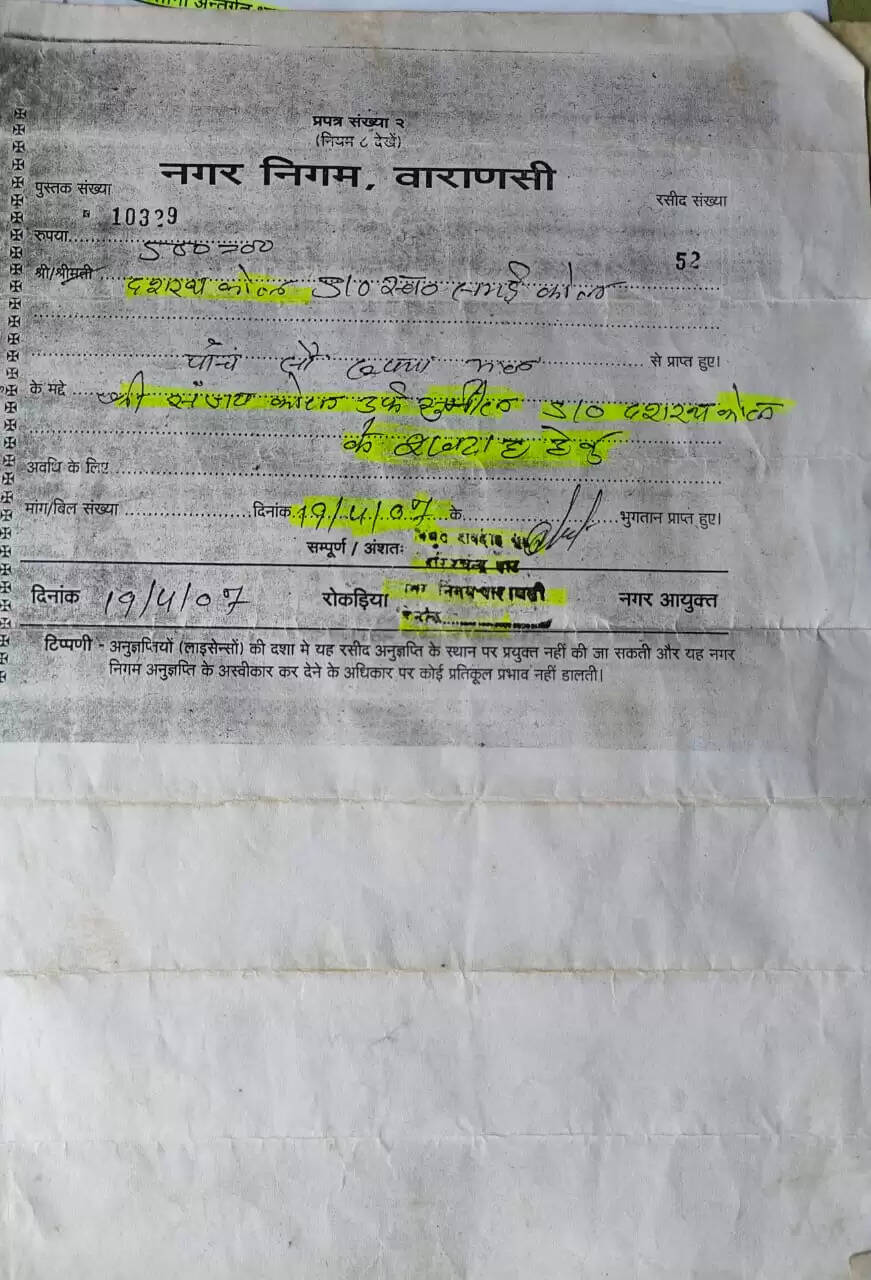 अन्तर्गत
प्रपत्र संख्या २
(नियम ८ देखें)
नगर निगम, वाराणसी
पुस्तक संख्या
रसीद संख्या
10329
रुपया 500=00
52
श्री/श्रीमती दशरथ कोल S/O स्व0 कोल
पाँच सौ रूपया से प्राप्त हुए।
के मद्दे श्री संजय कोल उर्फ S/O दशरथ कोल
के शवदाह हेतु
अवधि के लिए
मांग/बिल संख्या दिनांक 19/4/07 के भुगतान प्राप्त हुए।
सम्पूर्ण / अंशतः
घाट
दिनांक 19/4/07 रोकड़िया नगर आयुक्त
टिप्पणी - अनुज्ञप्तियों (लाइसेन्सों) की दशा मे यह रसीद अनुज्ञप्ति के स्थान पर प्रयुक्त नहीं की जा सकती और यह नगर
निगम अनुज्ञप्ति के अस्वीकार कर देने के अधिकार पर कोई प्रतिकूल प्रभाव नहीं डालती।